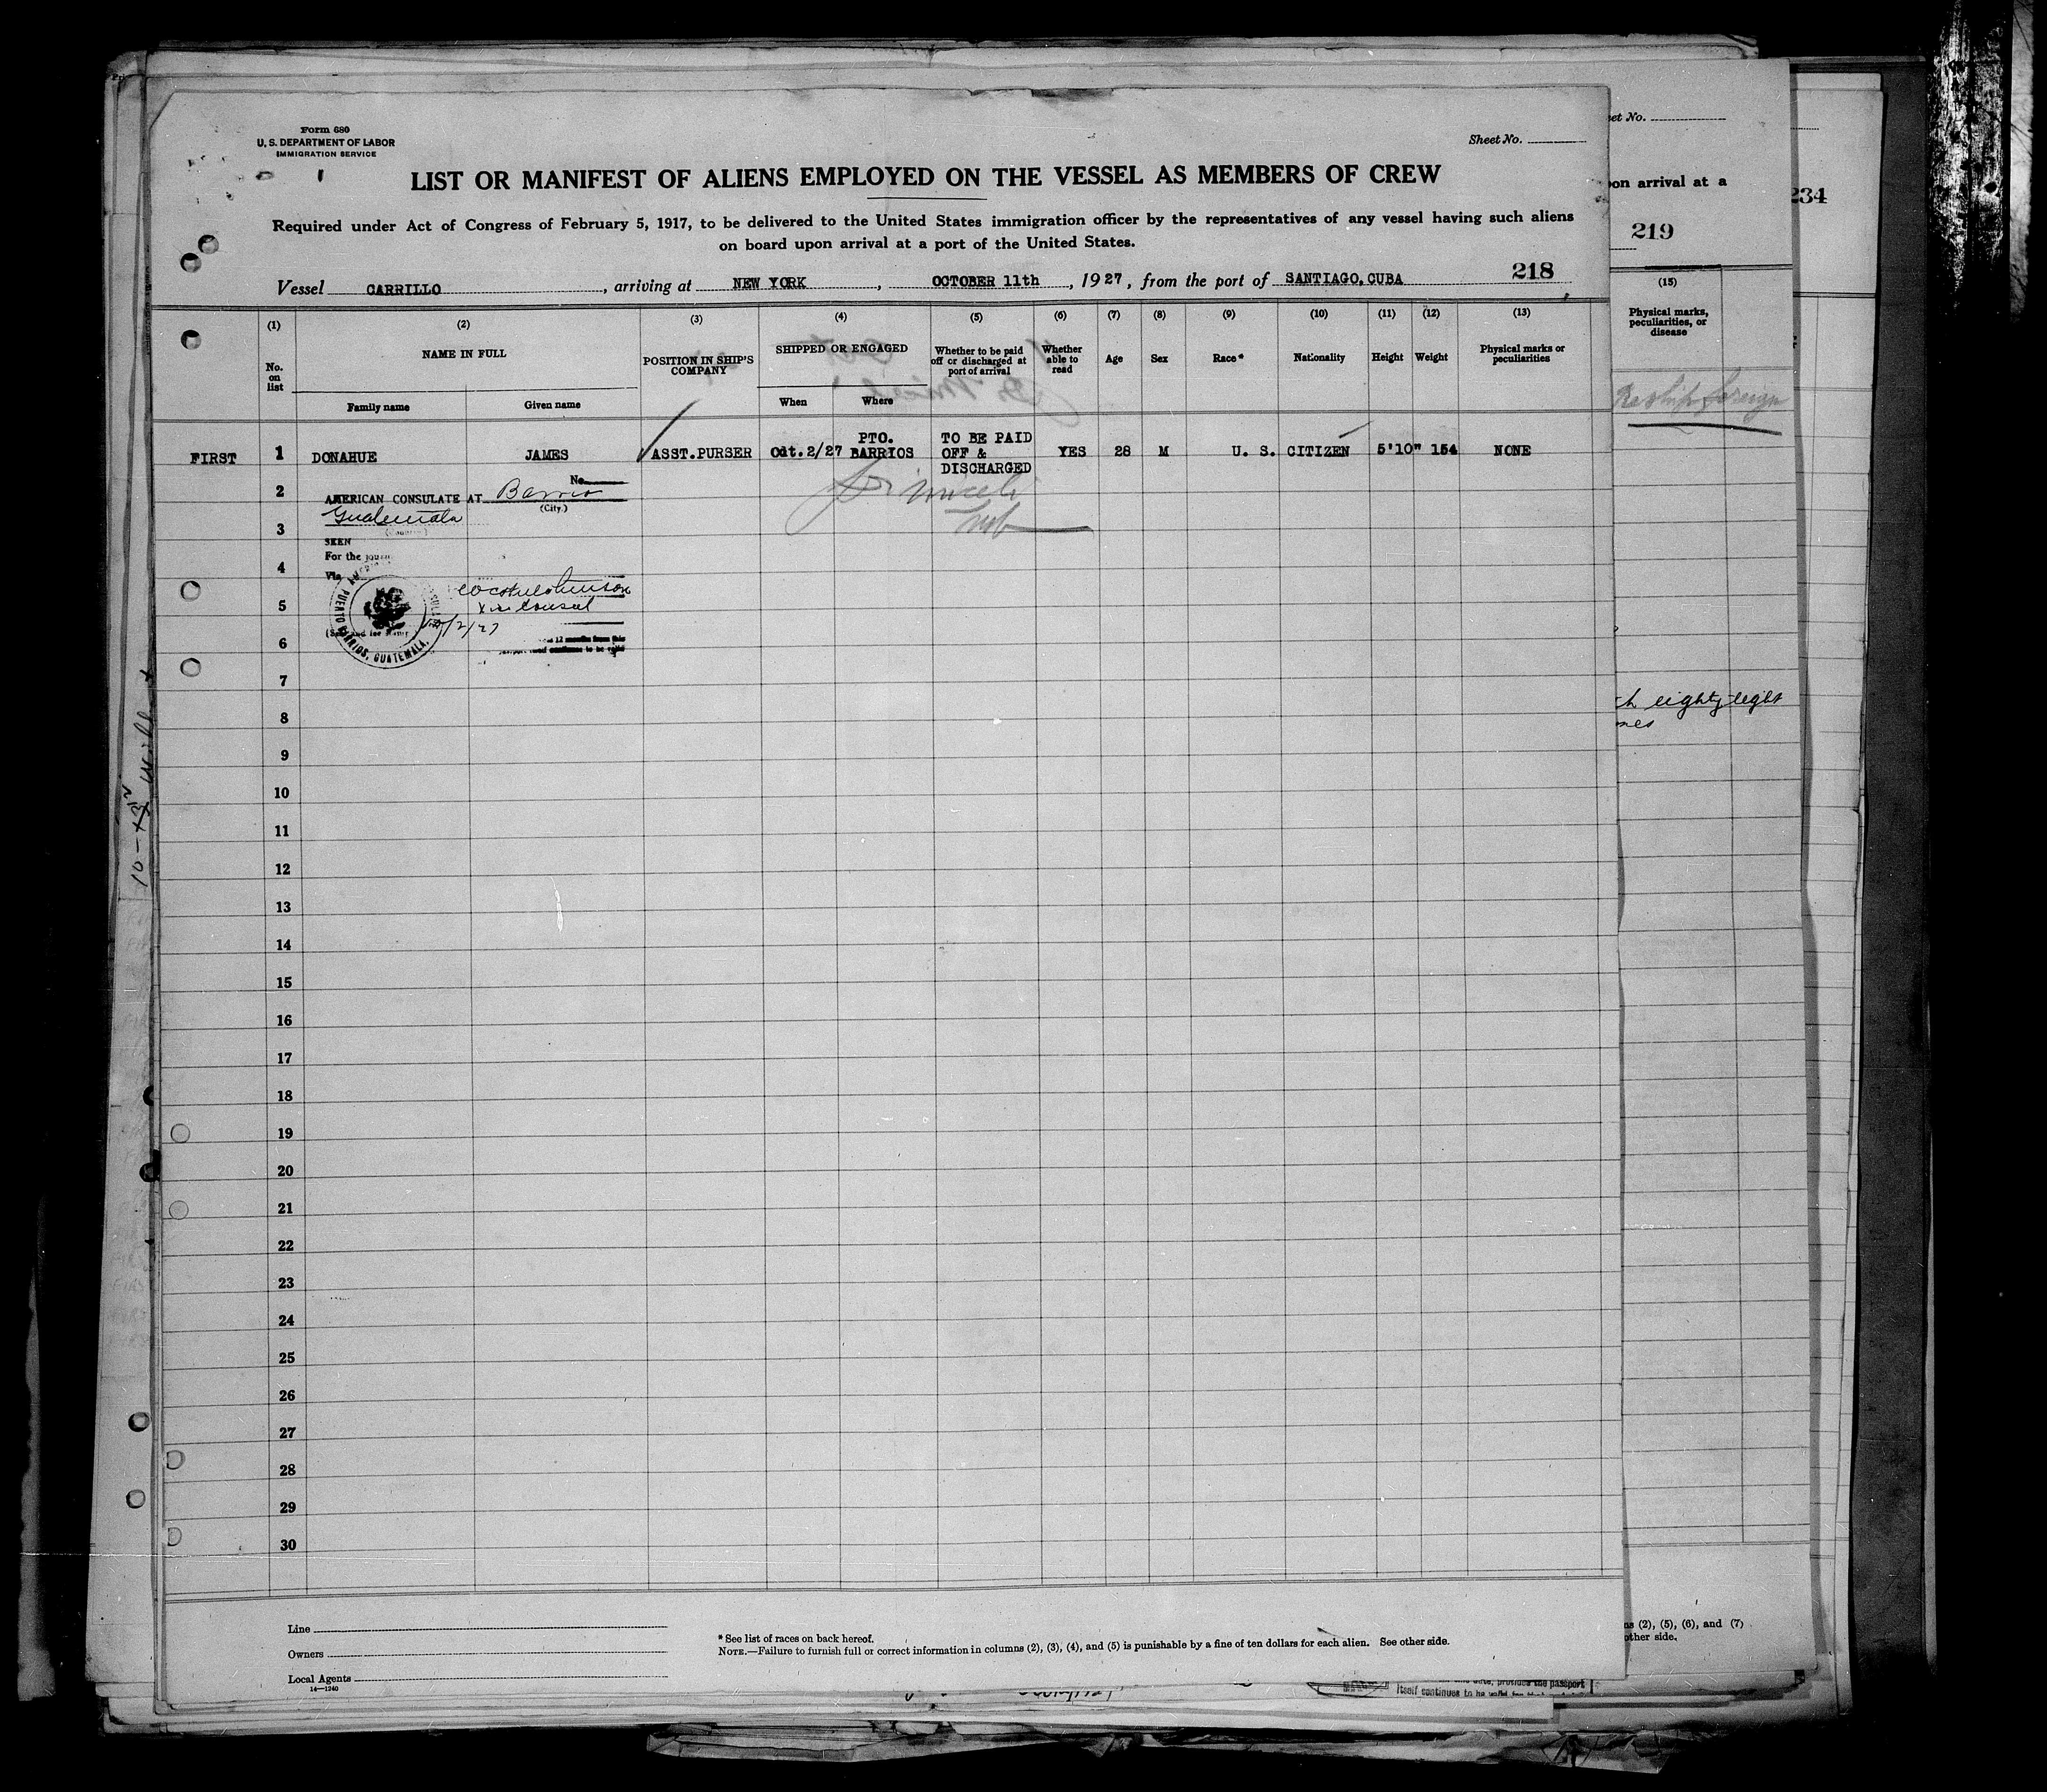 Form 680
U. S. DEPARTMENT OF LABOR
IMMIGRATION SERVICE
Sheet No.
LIST OR MANIFEST OF ALIENS EMPLOYED ON THE VESSEL AS MEMBERS OF CREW
Required under Act of Congress of February 5, 1917, to be delivered to the United States immigration officer by the representatives of any vessel having such aliens
on board upon arrival at a port of the United States.
Vessel CARRILLO, arriving at NEW YORK, OCTOBER 11th, 1927, from the port of SANTIAGO, CUBA 218
(1) (2) (3) (4) (5) (6) (7) (8) (9) (10) (11) (12) (13)
No. on list NAME IN FULL POSITION IN SHIP'S COMPANY SHIPPED OR ENGAGED Whether to be paid off or discharged at port of arrival Whether able to read Age Sex Race* Nationality Height Weight Physical marks or peculiarities
Family name Given name When Where
FIRST 1 DONAHUE JAMES ASST. PURSER Oct. 2/27 PTO. BARRIOS TO BE PAID OFF & DISCHARGED YES 28 M U. S. CITIZEN 5'10" 154 NONE
2
No.
AMERICAN CONSULATE AT Barrios
(City.)
Guatemala
3
SEEN
For the
4
Via
5
Vice Consul
10/2/27
PUERTO BARRIOS, GUATEMALA.
6
7
8
9
10
11
12
13
14
15
16
17
18
19
20
21
22
23
24
25
26
27
28
29
30
Line
Owners
Local Agents
14—1240
* See list of races on back hereof.
NOTE.—Failure to furnish full or correct information in columns (2), (3), (4), and (5) is punishable by a fine of ten dollars for each alien. See other side.
et No.
on arrival at a
219
234
(15)
Physical marks,
peculiarities, or
disease
Reship foreign
eighty-eight
(2), (5), (6), and (7)
other side.
the passport
itself continues to be valid